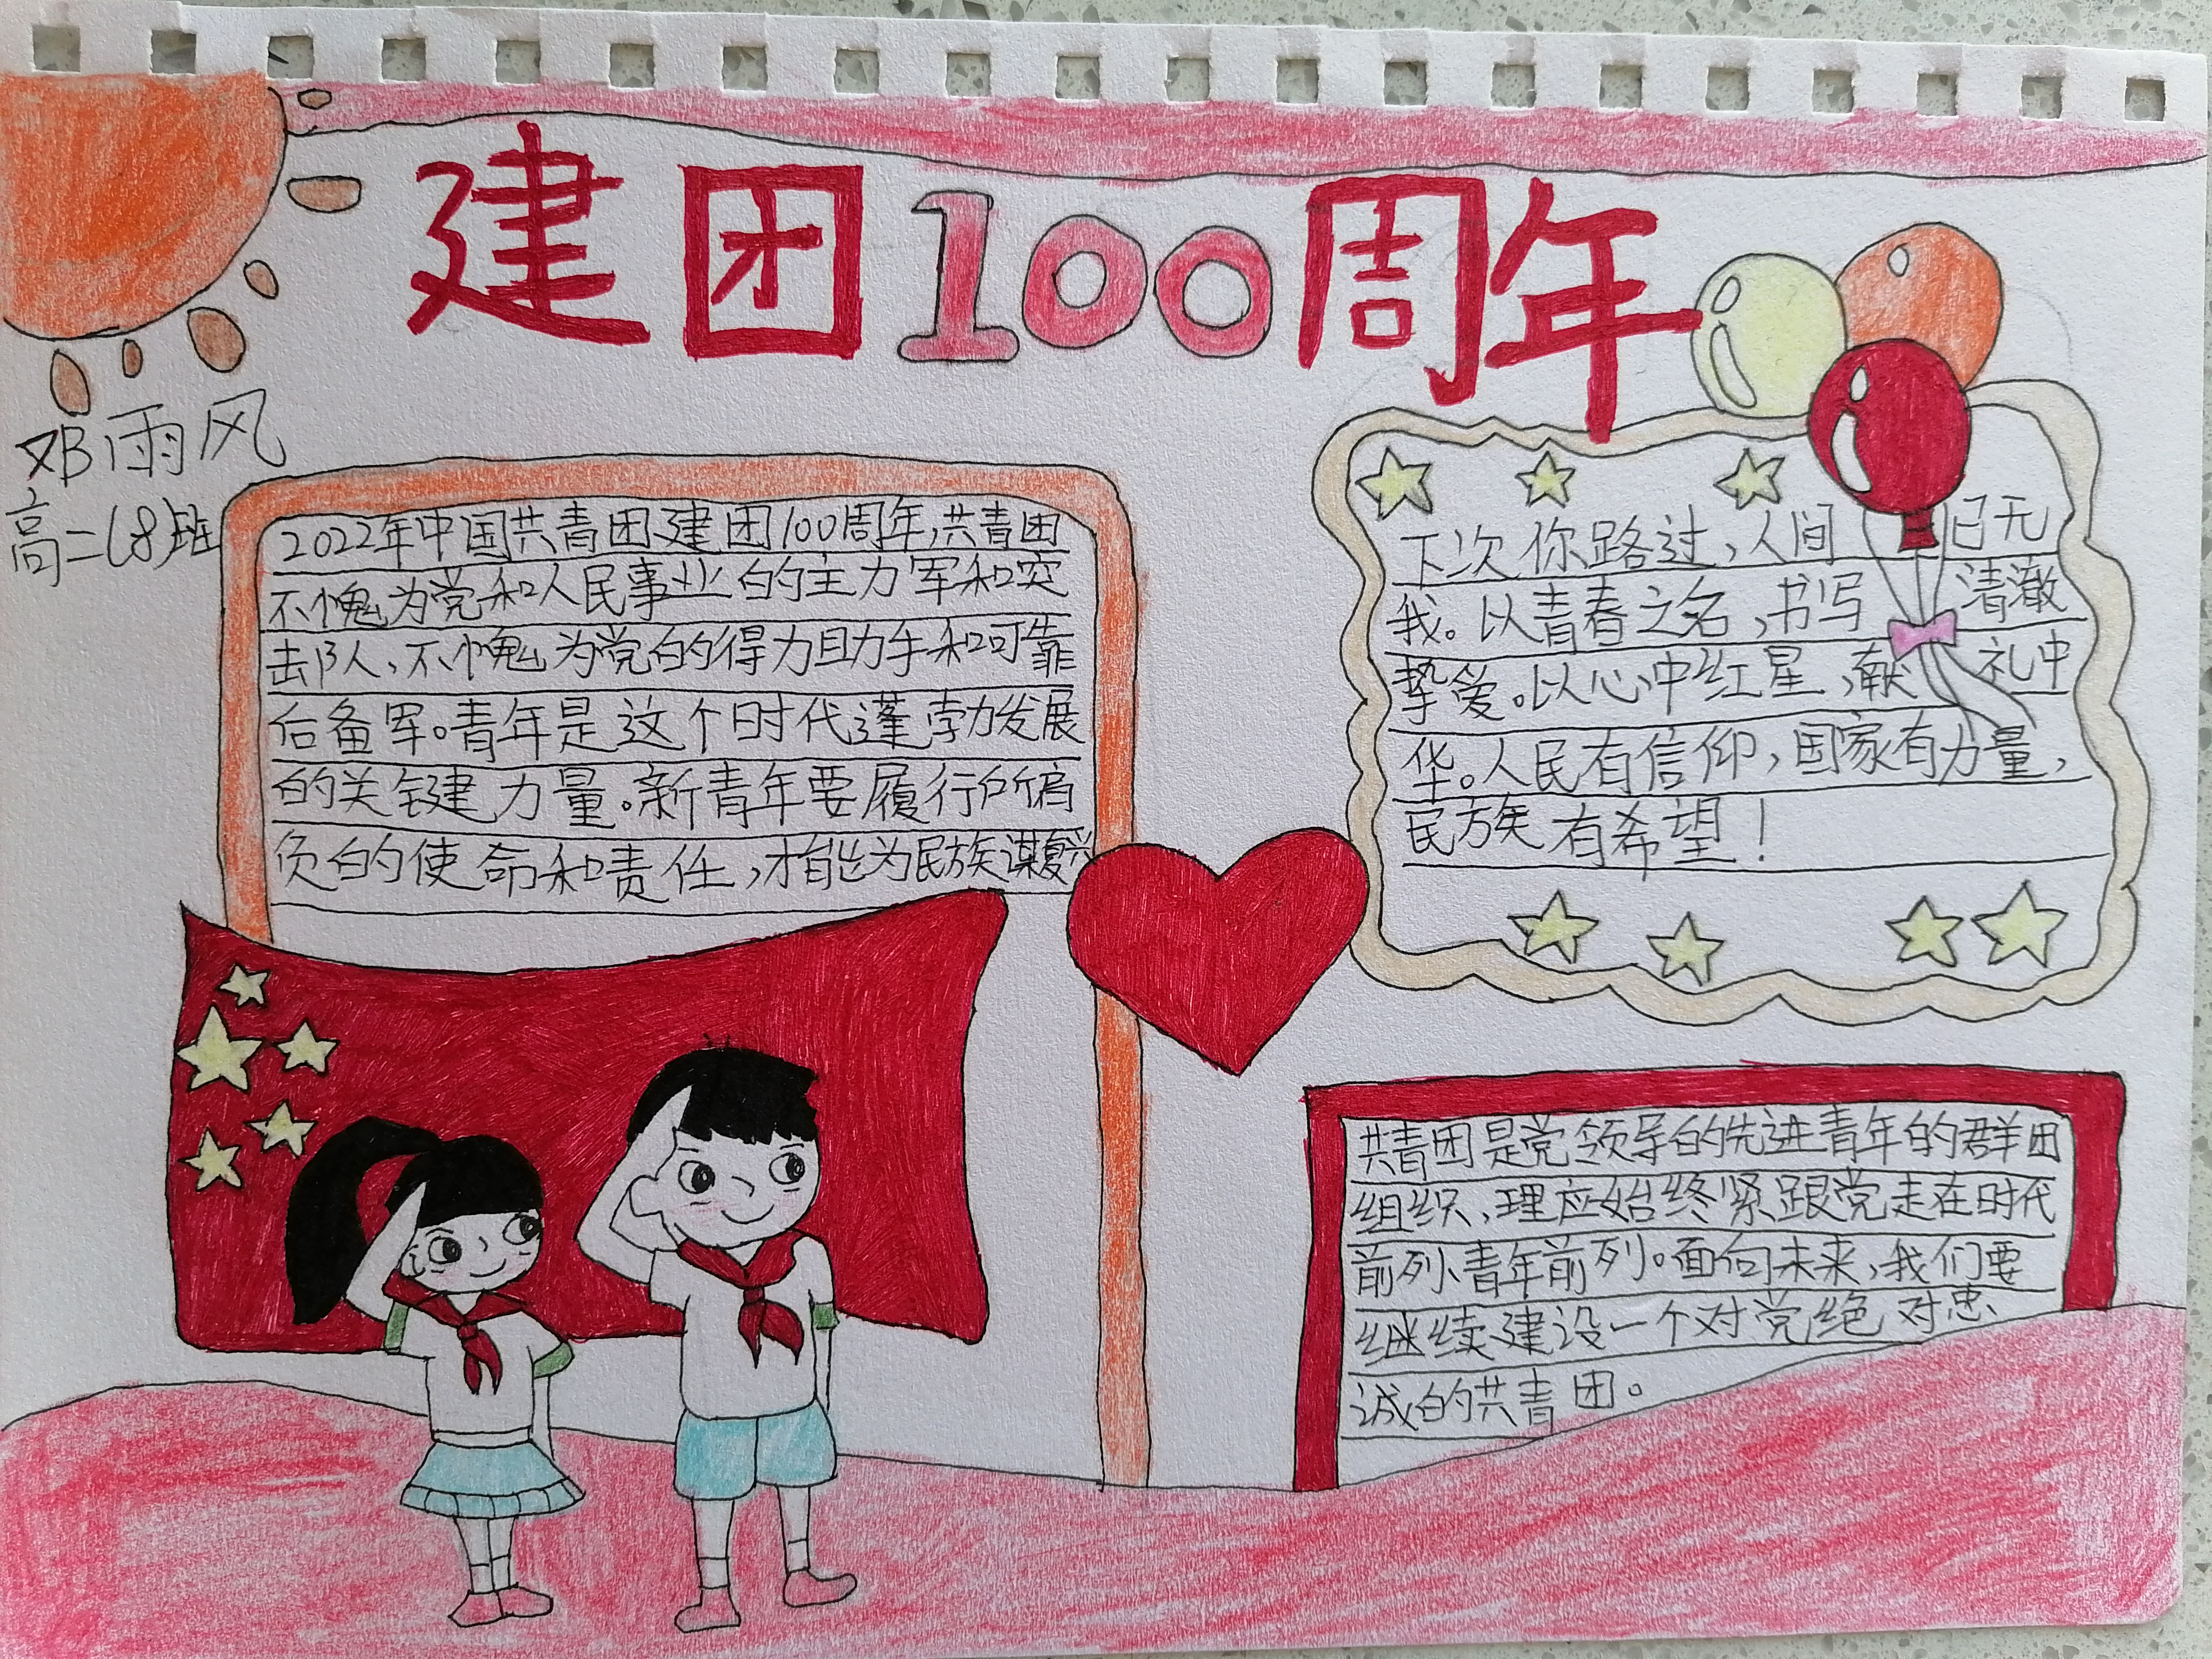 建团100周年
邓雨风
高二(8)班
2022年中国共青团建团100周年,共青团
不愧为党和人民事业的主力军和突
击队,不愧为党的得力助手和可靠
后备军。青年是这个时代蓬勃发展
的关键力量。新青年要履行所肩
负的使命和责任,才能为民族谋复兴
下次你路过,人间已无
我。以青春之名,书写清澈
挚爱。以心中红星,献礼中
华。人民有信仰,国家有力量,
民族有希望!
共青团是党领导的先进青年的群团
组织,理应始终紧跟党走在时代
前列、青年前列。面向未来,我们要
继续建设一个对党绝对忠
诚的共青团。